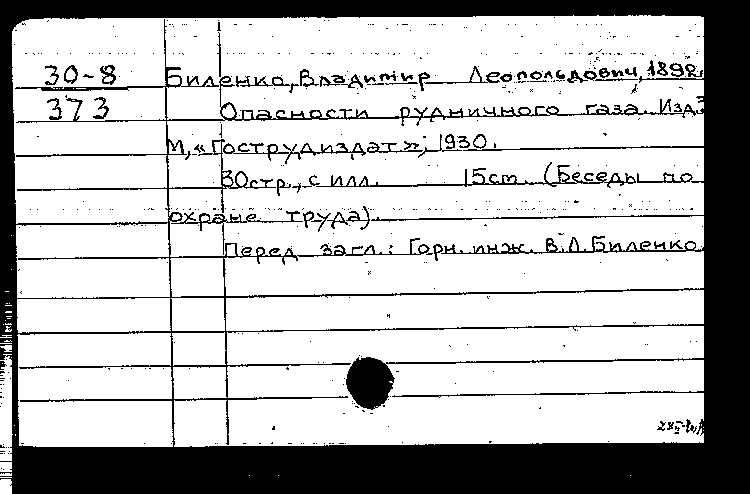 30-8
373
Биленко, Владимир Леопольдович, 1892.
Опасности рудничного газа. Изд. 3
М, «Гострудиздат», 1930.
30стр., с илл. 15см. (Беседы по
охране труда).
Перед загл.: Горн. инж. В.Л. Биленко.